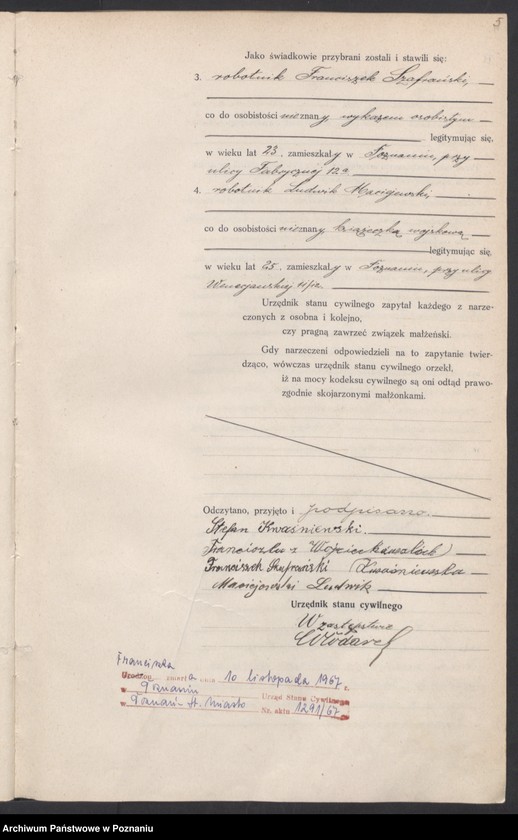 5
Jako świadkowie przybrani zostali i stawili się:
3. robotnik Franciszek Szafrański,
co do osobistości nieznany wykazem osobistym
legitymując się,
w wieku lat 23, zamieszkały w Poznaniu, przy
ulicy Fabrycznej 12a
4. robotnik Ludwik Maciejewski,
co do osobistości nieznany książeczką wojskową
legitymując się,
w wieku lat 25, zamieszkały w Poznaniu, przy ulicy
11/12
Urzędnik stanu cywilnego zapytał każdego z narze-
czonych z osobna i kolejno,
czy pragną zawrzeć związek małżeński.
Gdy narzeczeni odpowiedzieli na to zapytanie twier-
dząco, wówczas urzędnik stanu cywilnego orzekł,
iż na mocy kodeksu cywilnego są oni odtąd prawo-
zgodnie skojarzonymi małżonkami.
Odczytano, przyjęto i podpisano.
Stefan Kwaśniewski.
Franciszka z Wojciechowskich
Franciszek Szafrański Kwaśniewska
Maciejewski Ludwik
Urzędnik stanu cywilnego
W zastępstwie
Franciszka
zmarła dnia 10 listopada 1967 r.
w Poznaniu Urząd Stanu Cywilnego
w Poznań-St. Miasto Nr. aktu 1291/67
Archiwum Państwowe w Poznaniu